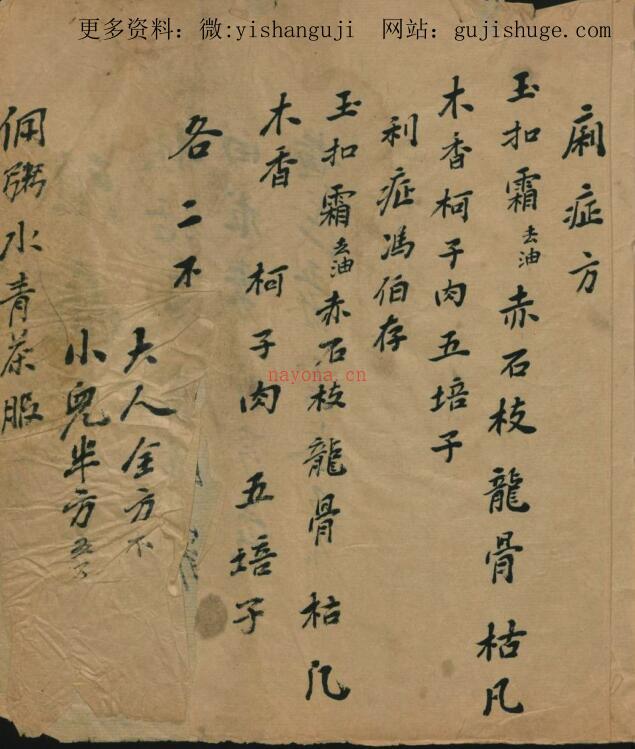 更多资料：微:yishanguji　网站：gujishuge.com
痢症方
玉扣霜去油赤石枝龍骨枯凡
木香柯子肉五培子
利症馮伯存
玉扣霜去油赤石枝龍骨枯凡
木香　柯子肉　五培子
各二不
大人全方不
小兒半方五下
粥水青茶服
nayona.cn